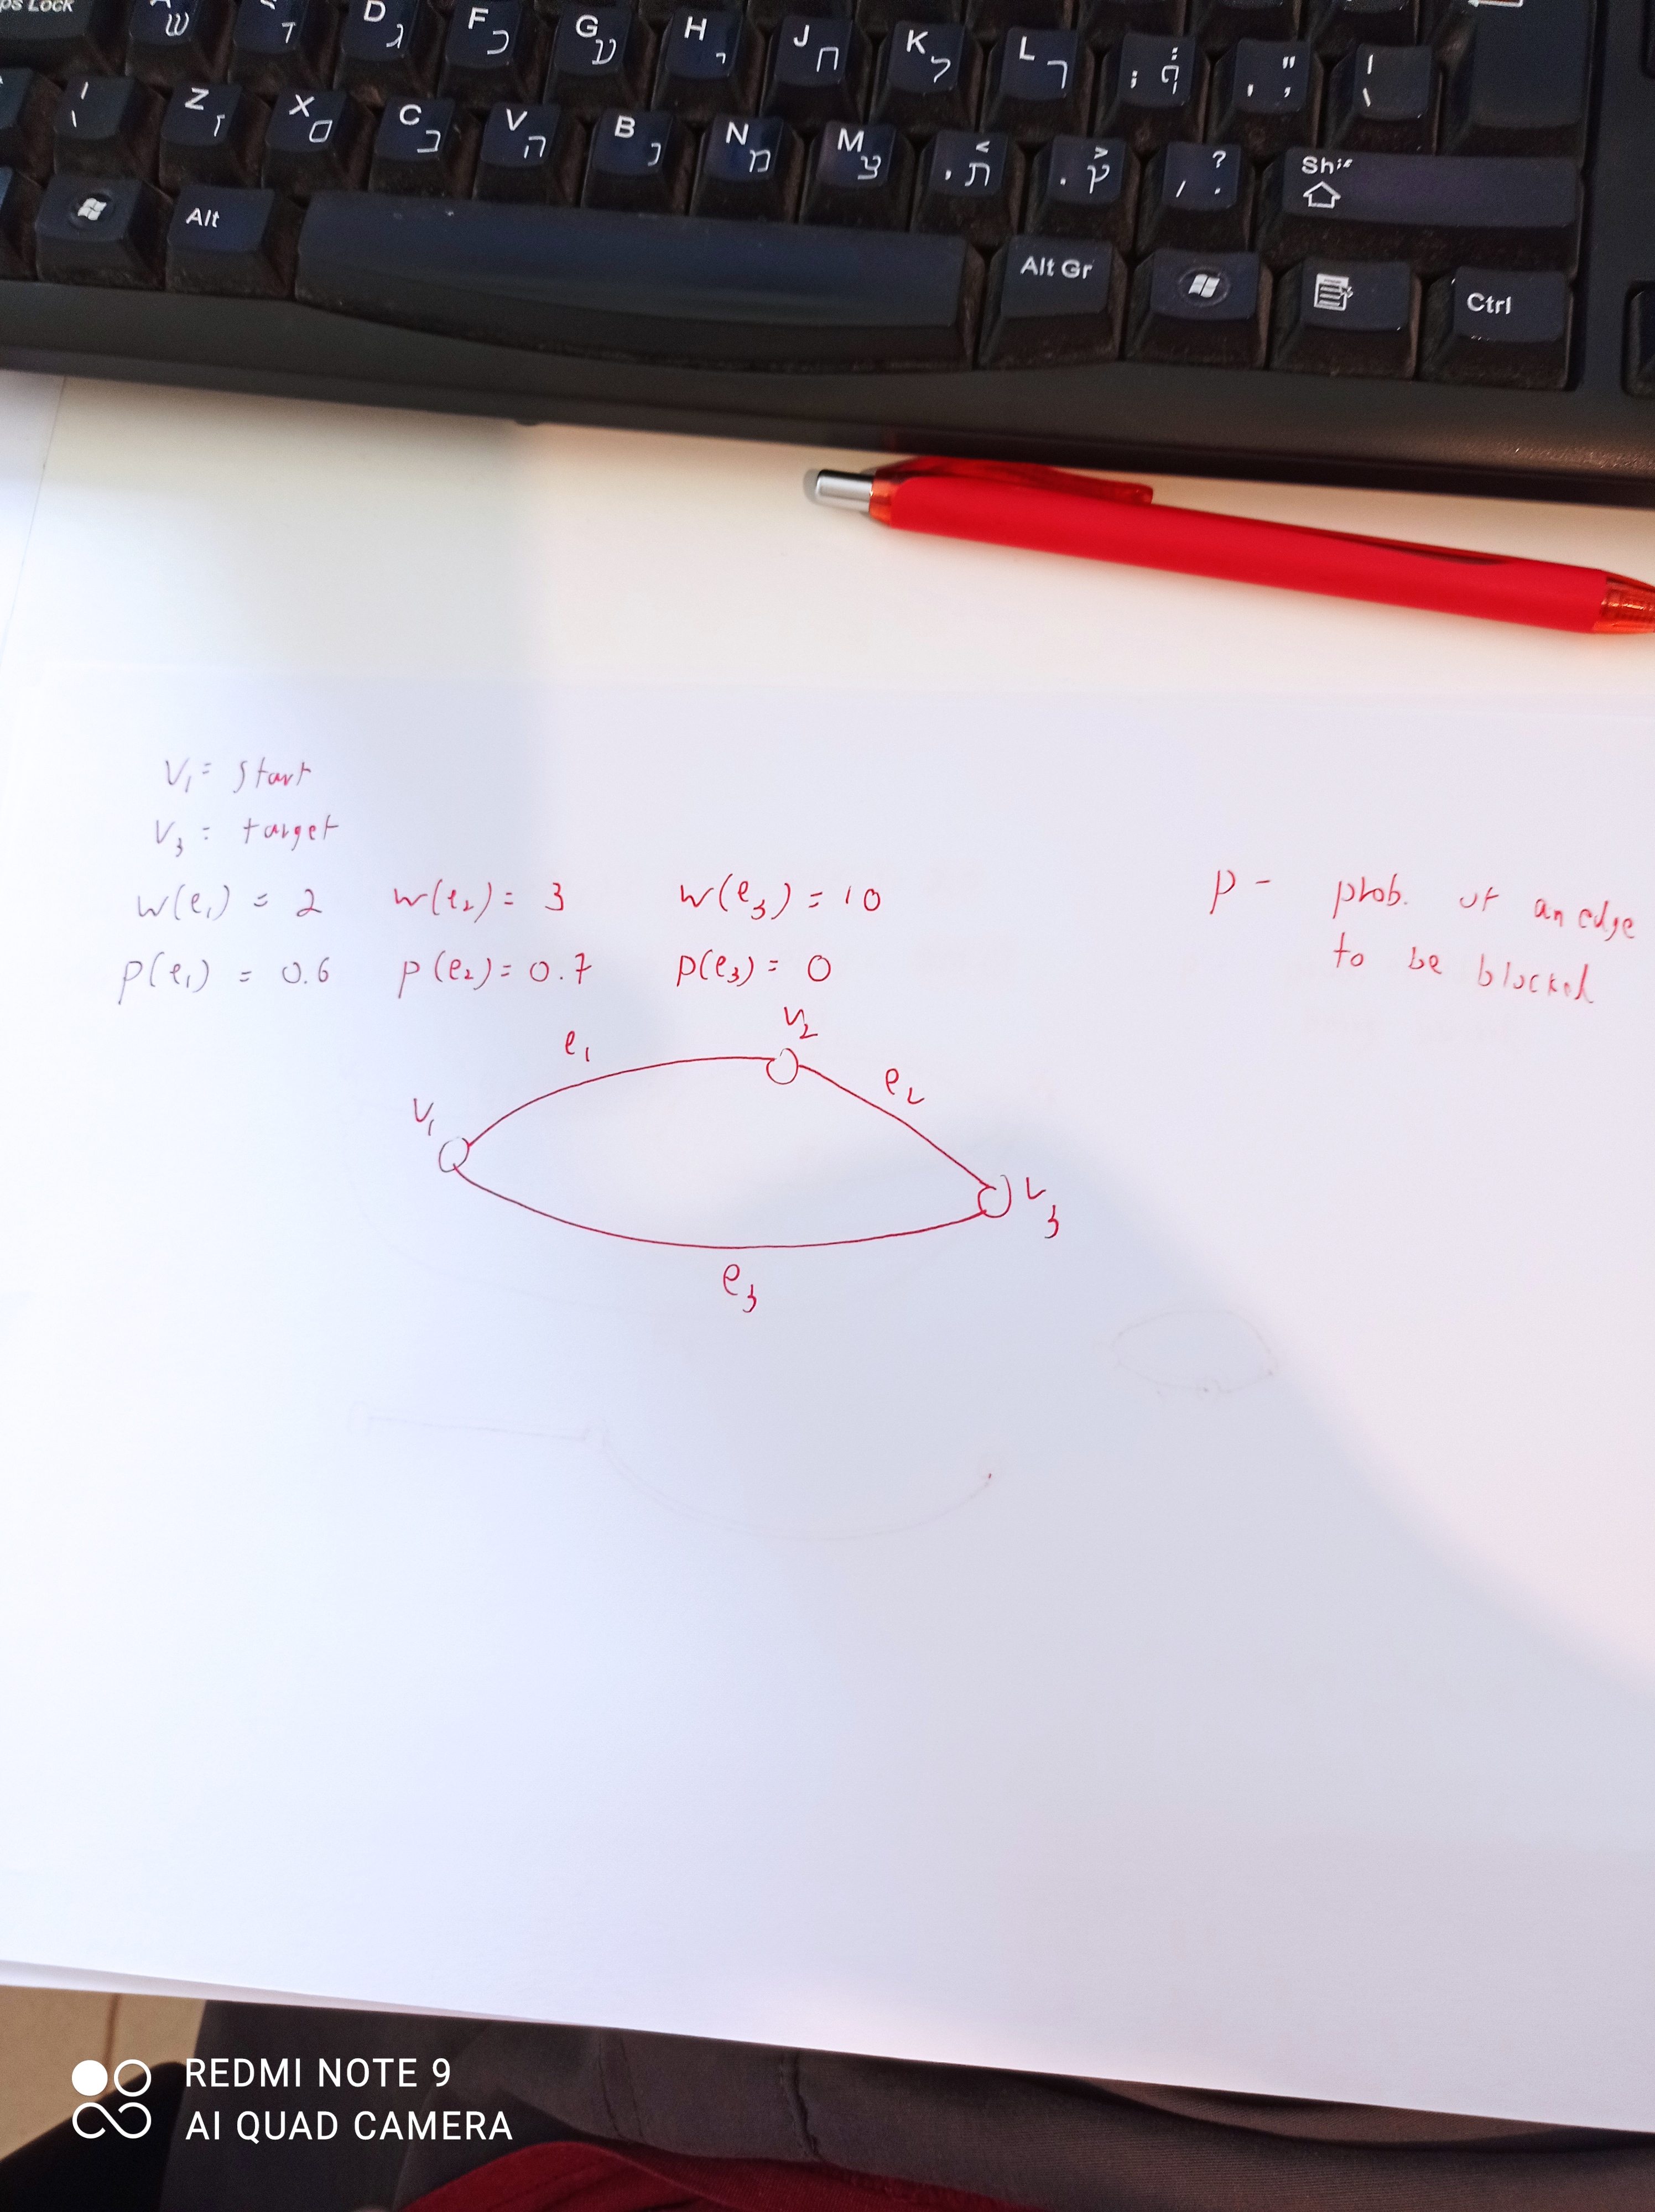 ps Lock
D ג F כ G ע H י J ח K ל L ך ; : ף , " | \
ש ד
| \ Z ז X ס C ב V ה B נ N מ M צ , < ת . > ץ / ? . Shif
Alt Alt Gr Ctrl
V₁ = start
V₃ = target
w(e₁) = 2 w(e₂) = 3 w(e₃) = 10
p(e₁) = 0.6 p(e₂) = 0.7 p(e₃) = 0
p - prob. of an edge
to be blocked
V₂
e₁
e₂
V₁
V₃
e₃
REDMI NOTE 9
AI QUAD CAMERA